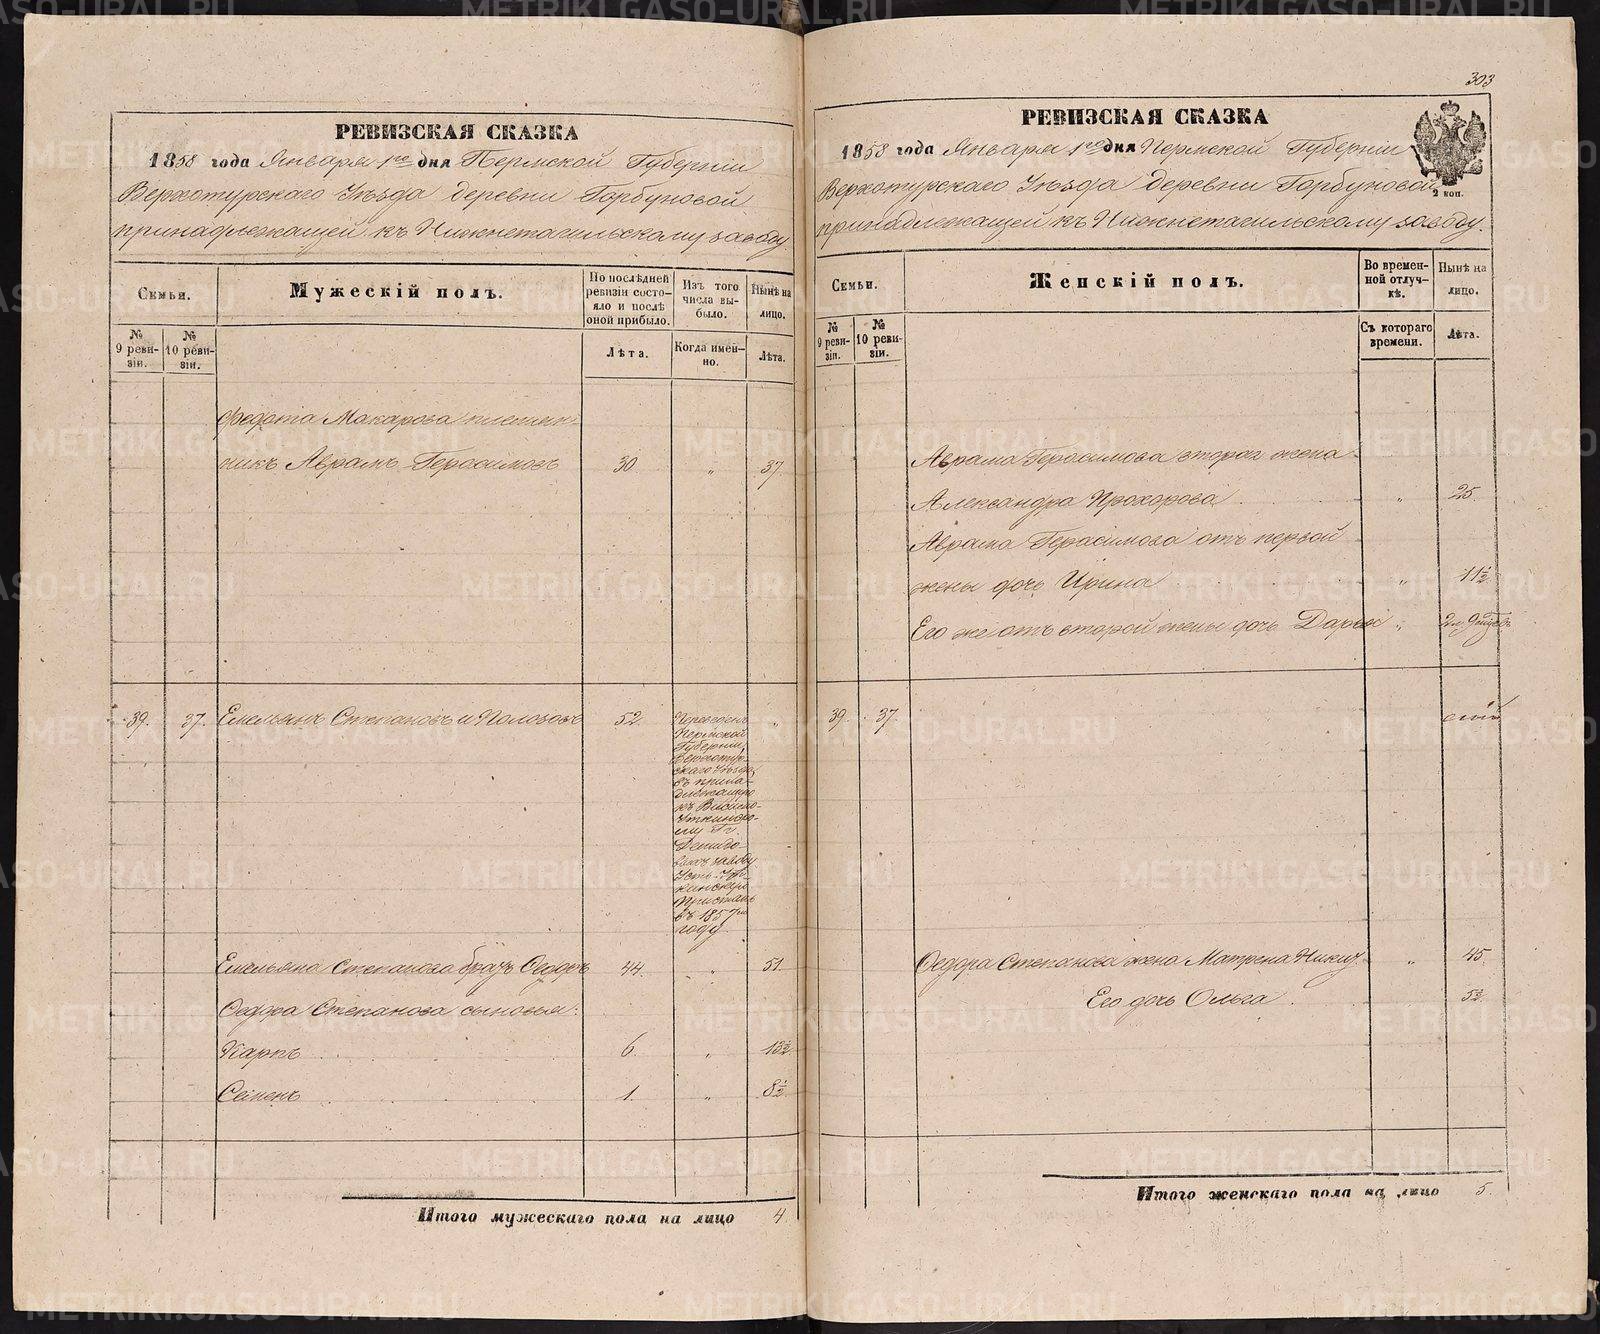 РЕВИЗСКАЯ СКАЗКА
1858 года Января 1го дня Пермской Губерніи
Верхотурскаго Уѣзда деревни Горбуновой
принадлежащей къ Нижнетагильскому заводу
Семьи.
Мужескій полъ.
По послѣдней ревизіи состояло и послѣ оной прибыло.
Изъ того числа выбыло.
Нынѣ на лицо.
№ 9 ревизіи.
№ 10 ревизіи.
Лѣта.
Когда именно.
Лѣта.
Федота Макарова племян-
никъ Аврамъ Герасимовъ 30 „ 37.
39. 37. Емельянъ Степановъ и Полозовъ 52. „
Переведенъ
Пермской
Губерніи,
Верхотур-
скаго Уѣзда,
въ прина-
длежащую
къ Висимо-
Уткинско-
му Гг.
Демидо-
выхъ заводу
Усть-Ут-
кинскую
Пристань
въ 1857м
году.
Емельяна Степанова братъ Ѳедоръ 44. „ 51.
Ѳедора Степанова сыновья:
Карпъ 6. „ 13½
Семенъ 1. „ 8½
Итого мужескаго пола на лицо 4
303
РЕВИЗСКАЯ СКАЗКА
1858 года Января 1го дня Пермской Губерніи
2 коп.
Верхотурскаго Уѣзда деревни Горбуновой
принадлежащей къ Нижнетагильскому заводу.
Семьи.
Женскій полъ.
Во временной отлучкѣ.
Нынѣ на лицо.
№ 9 ревизіи.
№ 10 ревизіи.
Съ котораго времени.
Лѣта.
Аврама Герасимова вторая жена
Александра Прохорова „ 25.
Аврама Герасимова отъ первой
жены дочь Ирина „ 11½
Его же отъ второй жены дочь Дарья „
39. 37.
Ѳедора Степанова жена Матрена Никит. „ 45
Его дочь Ольга. 5½
Итого женскаго пола на лицо 5.
METRIKI.GASO-URAL.RU